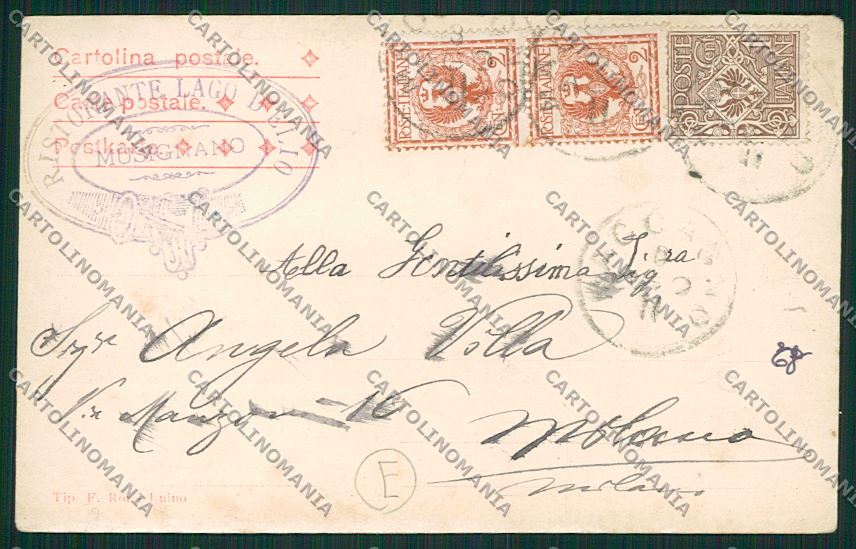 Cartolina postale.
Carte postale.
Postkarte.
RISTORANTE LAGO DELIO
MUSIGNANO
POSTE ITALIANE
POSTE ITALIANE
POSTE ITALIANE
MACCAGNO
Alla Gentilissima Sig.ra
Angela Villa
Via Manzoni 16
Milano
E
Tip. F. Luino
CARTOLINOMANIA